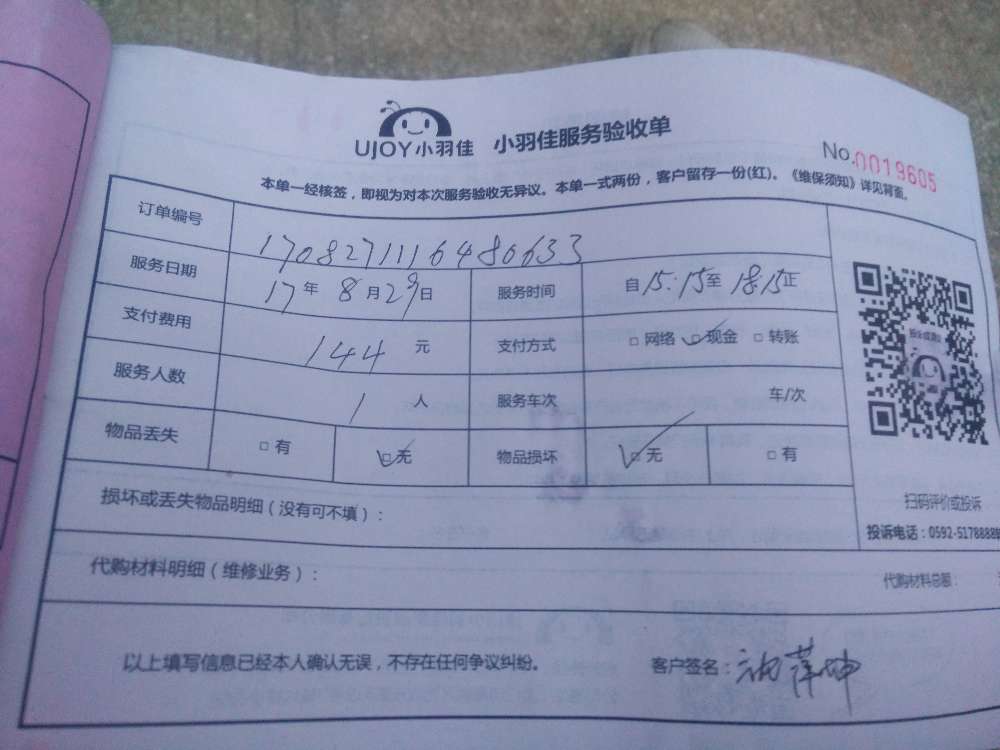 UJOY小羽佳 小羽佳服务验收单 No.0019605
本单一经核签，即视为对本次服务验收无异议。本单一式两份，客户留存一份(红)。《维保须知》详见背面。
订单编号 1708271116480633
服务日期 17年8月29日 服务时间 自15:15至18:15正
支付费用 144元 支付方式 □网络 ☑现金 □转账
服务人数 1人 服务车次 车/次
物品丢失 □有 ☑无 物品损坏 ☑无 □有
损坏或丢失物品明细（没有可不填）：
扫码评价或投诉
投诉电话：0592-5178888
代购材料明细（维修业务）：
代购材料总额：
以上填写信息已经本人确认无误，不存在任何争议纠纷。 客户签名：